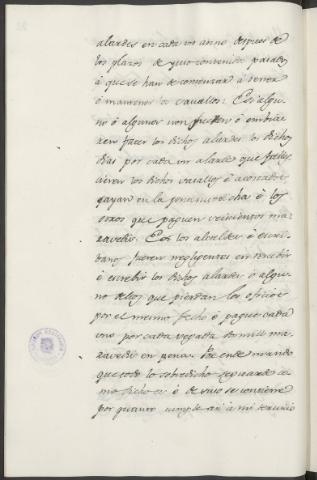 alardes en cada un anno despues de
los plazos de yuso contenidos
á que se han de comenzar á tener
é mantener los cavallos. E si algu-
no ó algunos non ó
ren facer los dichos alardes los dichos
dias por cada un alarde que
los dichos vasallos é
cayan en la pena suso dicha é los
otros que paguen seiscientos ma-
ravedis. E si los alcaldes ó escri-
banos fueren negligentes en recebir
ó escrebir los dichos alardes ó algu-
no dellos que pierdan los oficios
por el mesmo fecho é pague cada
uno por cada vegada dos mill ma-
ravedis en pena. Por ende mando
que todo lo sobredicho se guarde co-
mo dicho es é de suso se contiene
por quanto cumple asi á mi servicio